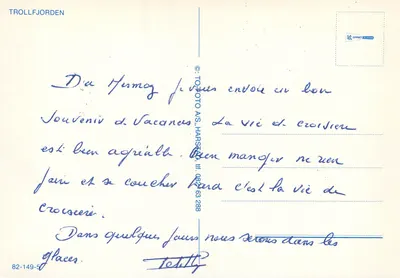 TROLLFJORDEN
Du Mermoz je vous envoie un bon
souvenir de vacances. La vie de croisière
est bien agréable. Bien manger ne rien
faire et se coucher tard c'est la vie de
croisière.
Dans quelques jours nous serons dans les
glaces.
82-149-5